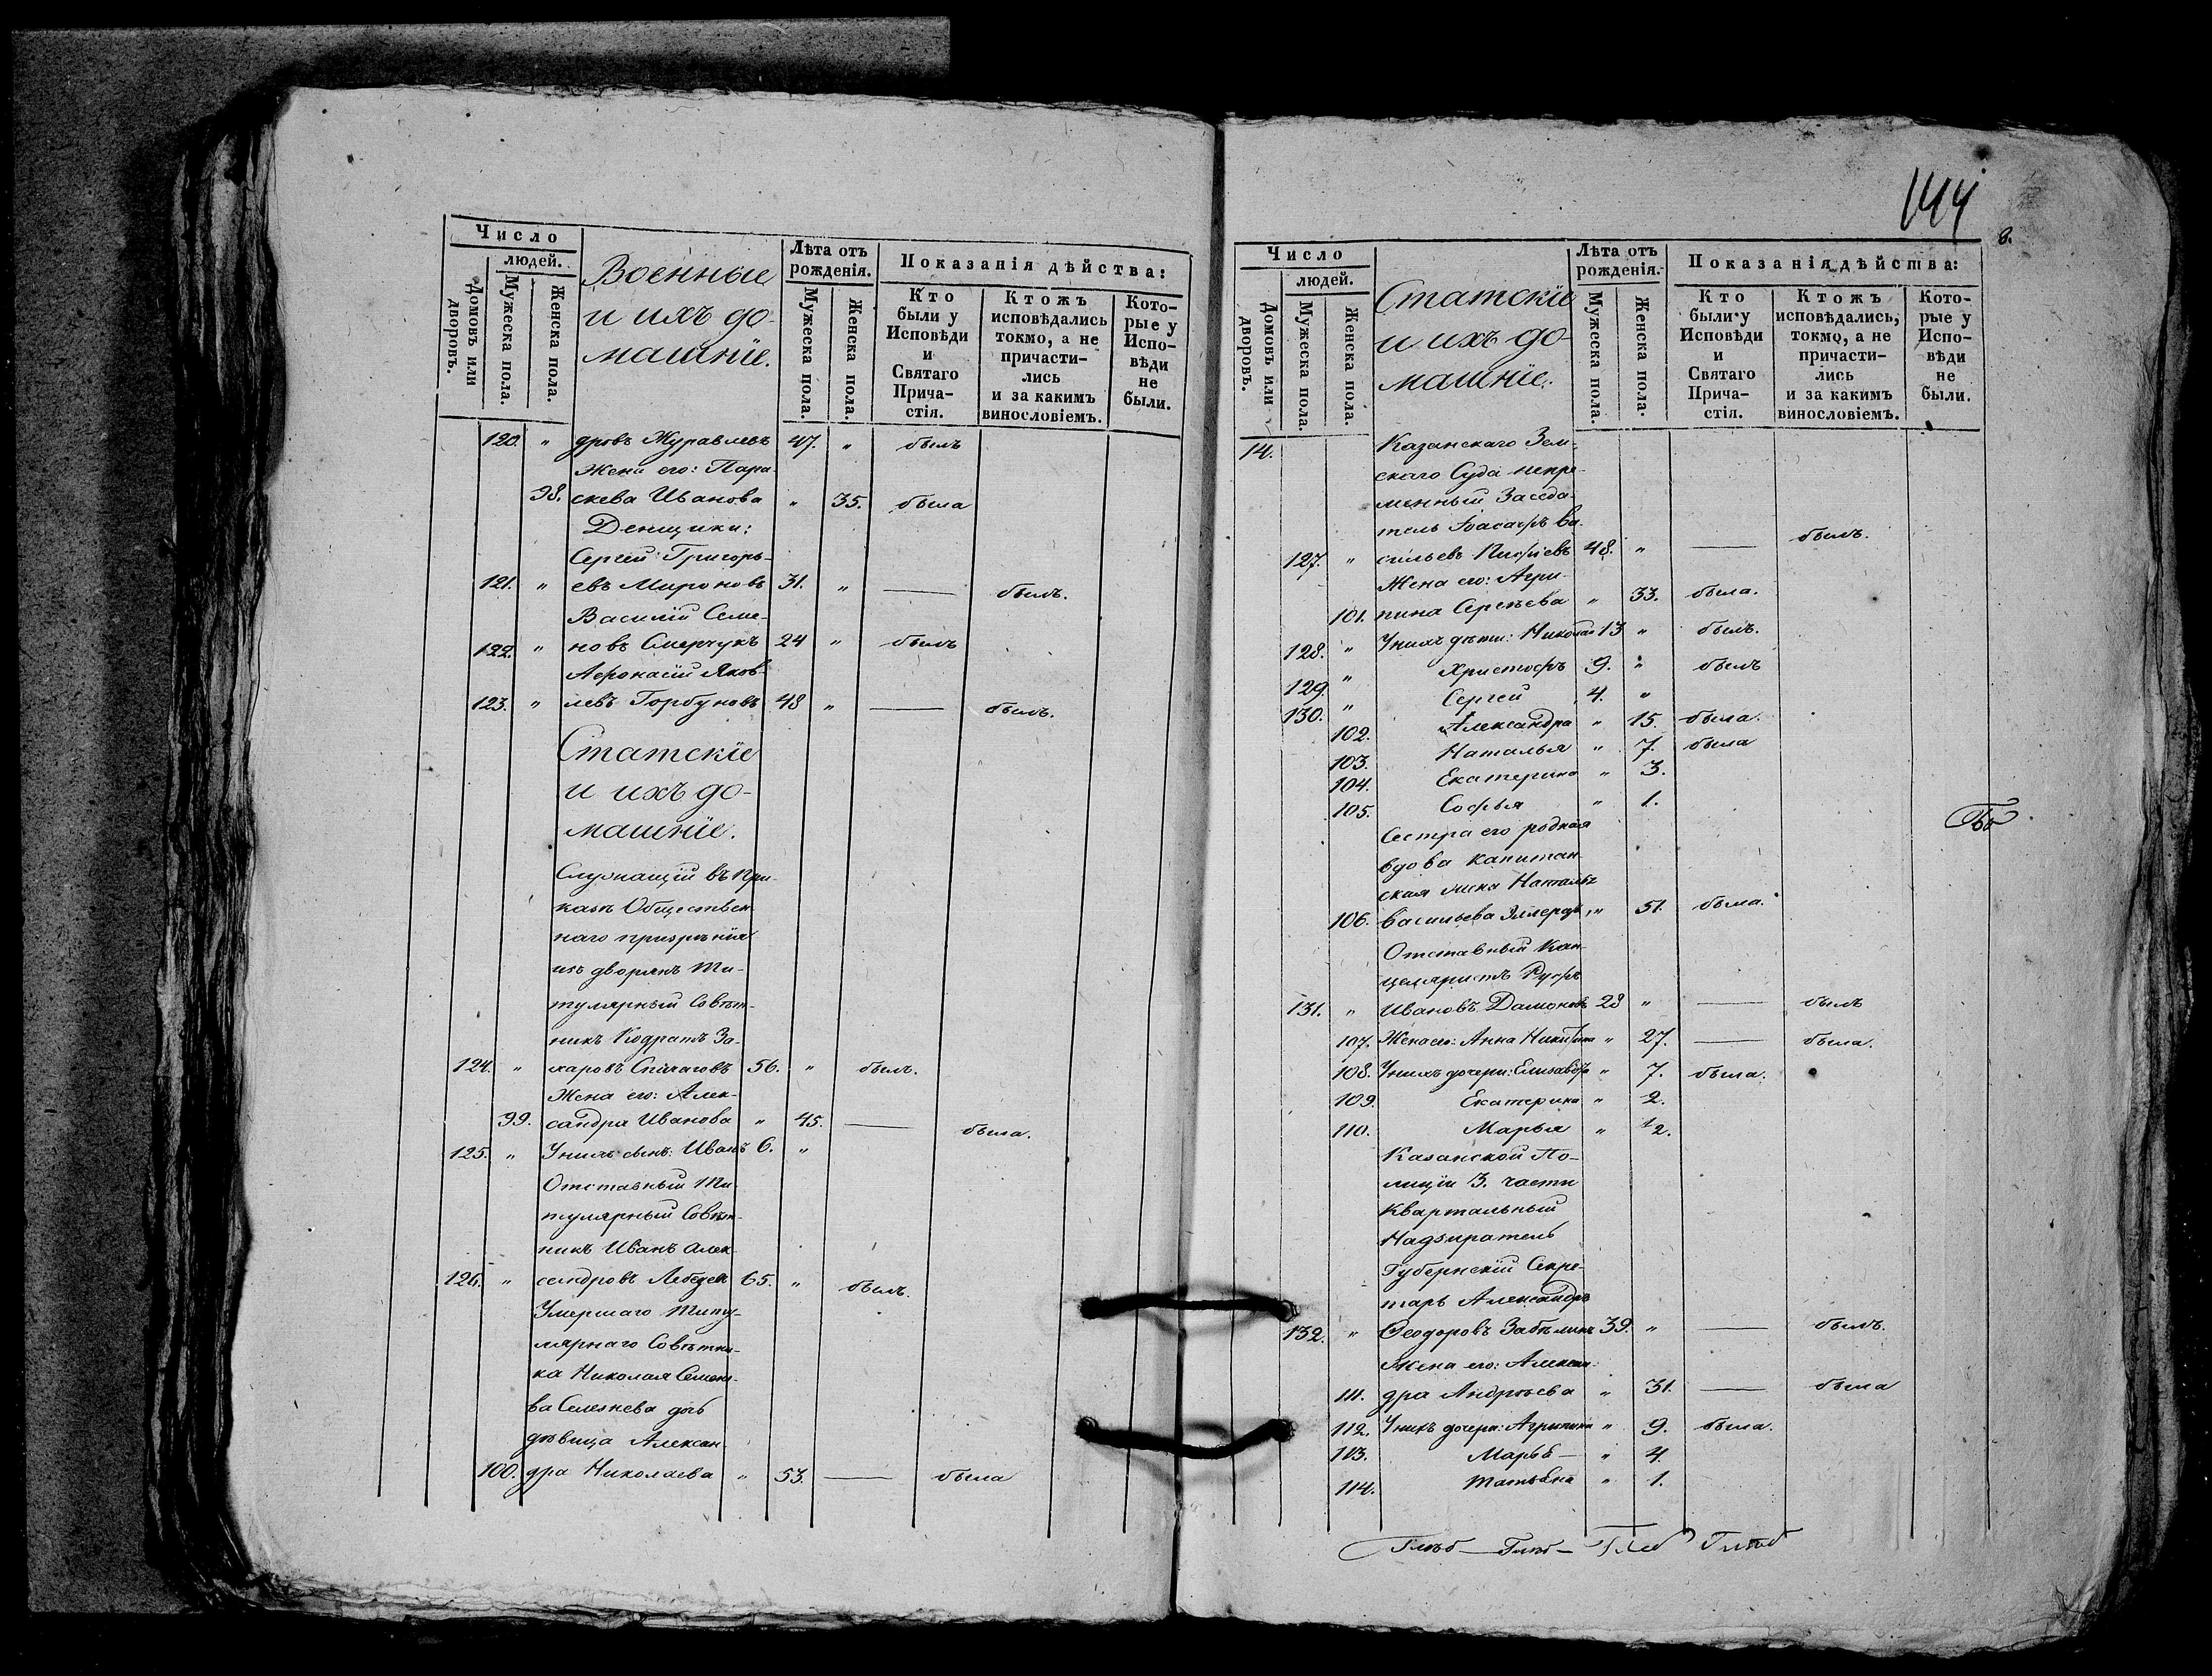 Число
людей.
Домовъ или дворовъ.
Мужеска пола.
Женска пола.
Военные
и ихъ до-
машніе.
Лѣта отъ
рожденія.
Мужеска пола.
Женска пола.
Показанія дѣйства:
Кто
были у
Исповѣди
и
Святаго
Прича-
стія.
Ктожъ
исповѣдались
токмо, а не
причасти-
лись
и за какимъ
винословіемъ.
Кото-
рые у
Испо-
вѣди
не
были.
120. " дровъ Журавлевъ 47. " былъ
Жена его: Пара-
98. скева Иванова " 35. была
Денщики:
Сергей Григорь-
121. " евъ Мироновъ 31. " — былъ.
Василій Семе-
122. " новъ Смерчукъ 24 " былъ
Афонасій Яков-
123. " левъ Горбуновъ 48 " — былъ.
Статскіе
и ихъ до-
машніе.
Служащій въ При-
казѣ Обществен-
наго призрѣнія
изъ дворянъ Ти-
тулярный Совѣт-
никъ Кодратъ За-
124. " харовъ 56. " былъ.
Жена его: Алек-
99. сандра Иванова " 45. — была.
125. " У нихъ сынъ: Иванъ 6. "
Отставный Ти-
тулярный Совѣт-
никъ Иванъ Алек-
126. " сандровъ Лебедев 65. " былъ.
Умершаго Титу-
лярнаго Совѣтни-
ка Николая Семено-
ва Селезнева дочь
дѣвица Алексан-
100. дра Николаева " 53. — была
144
8.
Число
людей.
Домовъ или дворовъ.
Мужеска пола.
Женска пола.
Статскіе
и ихъ до-
машніе.
Лѣта отъ
рожденія.
Мужеска пола.
Женска пола.
Показанія дѣйства:
Кто
были у
Исповѣди
и
Святаго
Прича-
стія.
Ктожъ
исповѣдались,
токмо, а не
причасти-
лись
и за какимъ
винословіемъ.
Кото-
рые у
Испо-
вѣди
не
были.
14. Казанскаго Зем-
скаго Суда непре-
менный Заседа-
тель Ва-
127. " сильевъ 48. " — былъ.
Жена его: Агри-
101. пина Сергѣева " 33. была.
128. " У нихъ дѣти: Николай 13 " былъ.
129. " Христофъ 9. " былъ
130. " Сергей 4. "
102. Александра " 15. была.
103. Наталья " 7. была
104. Екатерина " 3.
105. Софья " 1.
Сестра его родная
вдова капитан-
ская жена Наталья
106. Васильева " 51. была.
Отставный Кан-
целяристъ Руфъ
131. " Ивановъ Дамоновъ 28 " — былъ
107. Жена его: Анна Никитина " 27. — была.
108. У нихъ дочери: Елисавета " 7. была.
109. Екатерина " 2.
110. Марья " ½.
Казанской По-
лиціи 3. части
Квартальный
Надзиратель
Губернскій Секре-
тарь Александръ
132. " Феодоровъ Забѣлинъ 39. " — былъ.
Жена его: Алексан-
111. дра Андрѣева " 31. — была
112. У нихъ дочери: Агрипина " 9. была.
113. Марья — " 4.
114. Татьяна " 1.
Глѣб — Глѣб — Глеб Глѣб